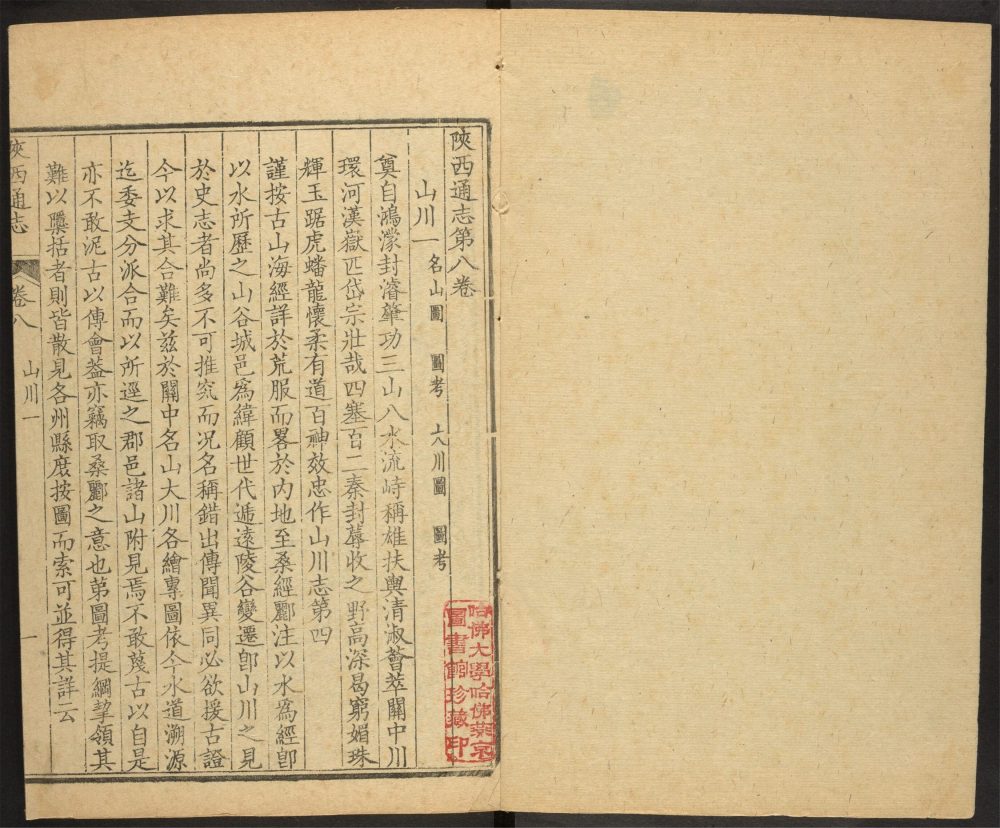 陝西通志第八卷
山川一 名山圖 圖考 大川圖 圖考
奠自鴻濛封濬肇功三山八水流峙稱雄扶輿清淑薈萃關中川
環河漢嶽匹岱宗壯哉四塞百二秦封蓐收之野高深曷窮媚珠
輝玉踞虎蟠龍懷柔有道百神效忠作山川志第四
謹按古山海經詳於荒服而畧於内地至桑經酈注以水爲經卽
以水所歷之山谷城邑爲緯顧世代遞遠陵谷變遷卽山川之見
於史志者尚多不可推究而况名稱錯出傳聞異同必欲援古證
今以求其合難矣兹於關中名山大川各繪專圖依今水道溯源
迄委支分派合而以所逕之郡邑諸山附見焉不敢蔑古以自是
亦不敢泥古以傳會葢亦竊取桑酈之意也第圖考提綱挈領其
難以檃括者則皆散見各州縣庶按圖而索可並得其詳云
陝西通志 卷八 山川一 一
哈佛大學哈佛燕京
圖書館珍藏印